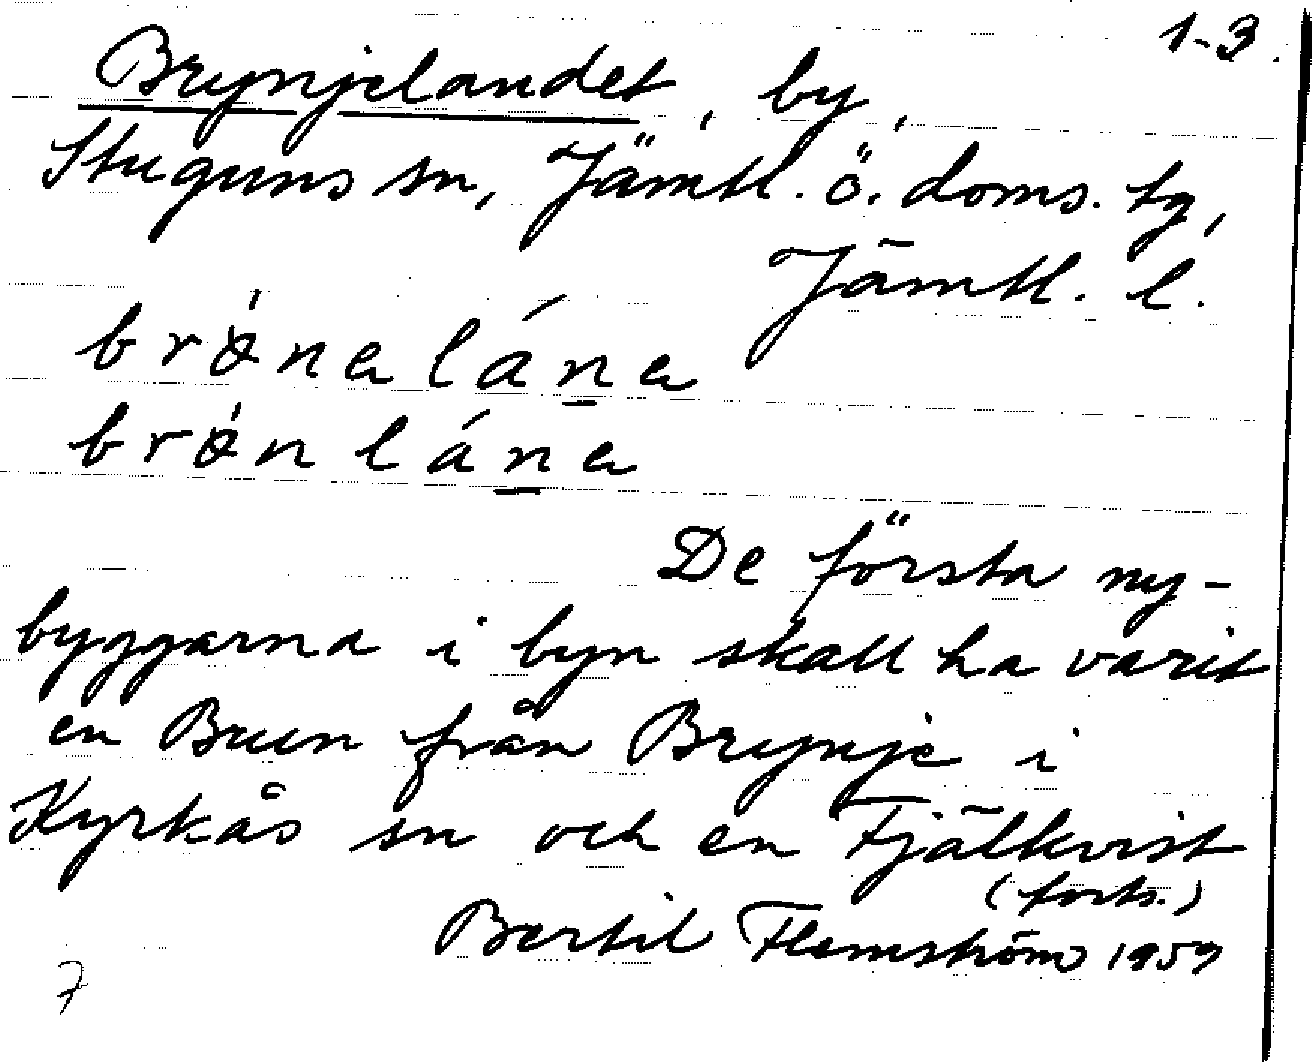 1-3.
Brynjelandet, by,
Stuguns sn, Jämtl. ö. doms. tg,
Jämtl. l.
brǿnalána
brǿn lána
De första ny-
byggarna i byn skall ha varit
en Brun från Brynje i
Kyrkås sn och en Fjällkvist
(forts.)
Bertil Flemström 1959
7